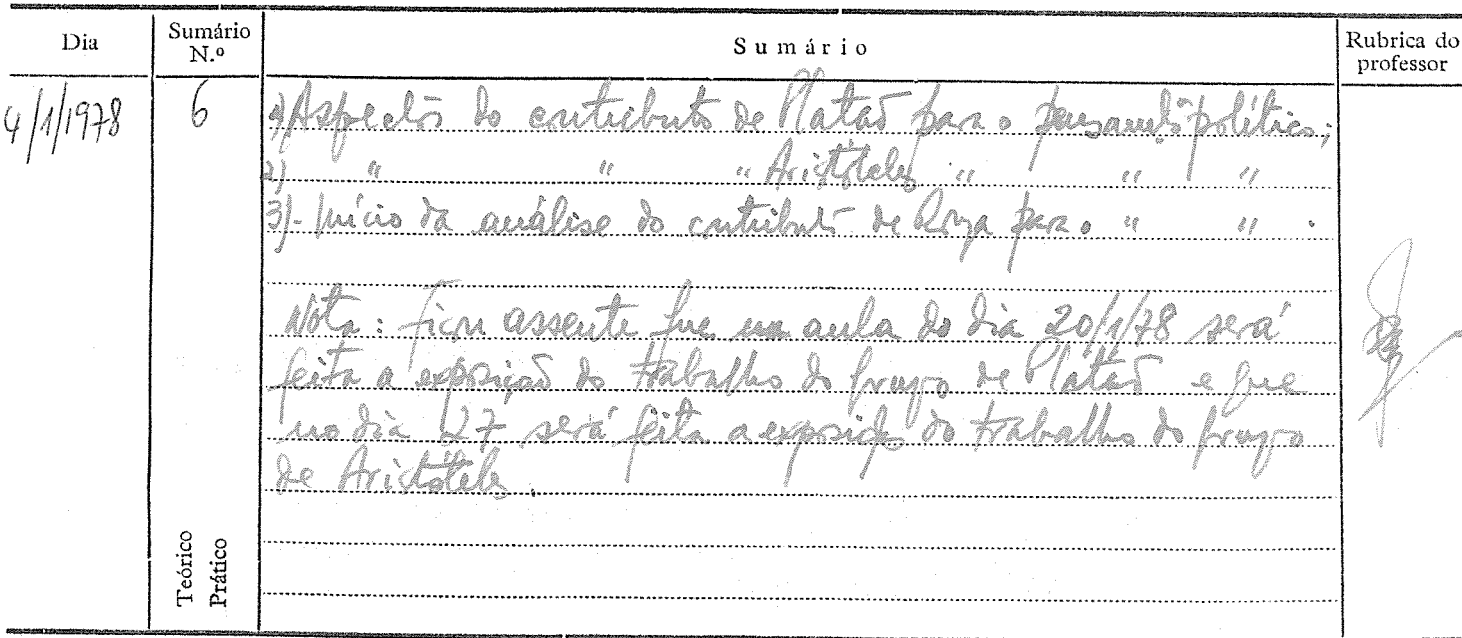 Dia
Sumário N.º
Sumário
Rubrica do professor
4/1/1978
6
1) Aspectos do contributo de Platão para o pensamento político;
2) " " " Aristóteles " " "
3) - Início da análise do contributo de Roma para o " " .
Nota: Ficou assente que na aula do dia 20/1/78 será
feita a exposição do trabalho do grupo de Platão e que
no dia 27 será feita a exposição do trabalho do grupo
de Aristóteles.
Teórico
Prático